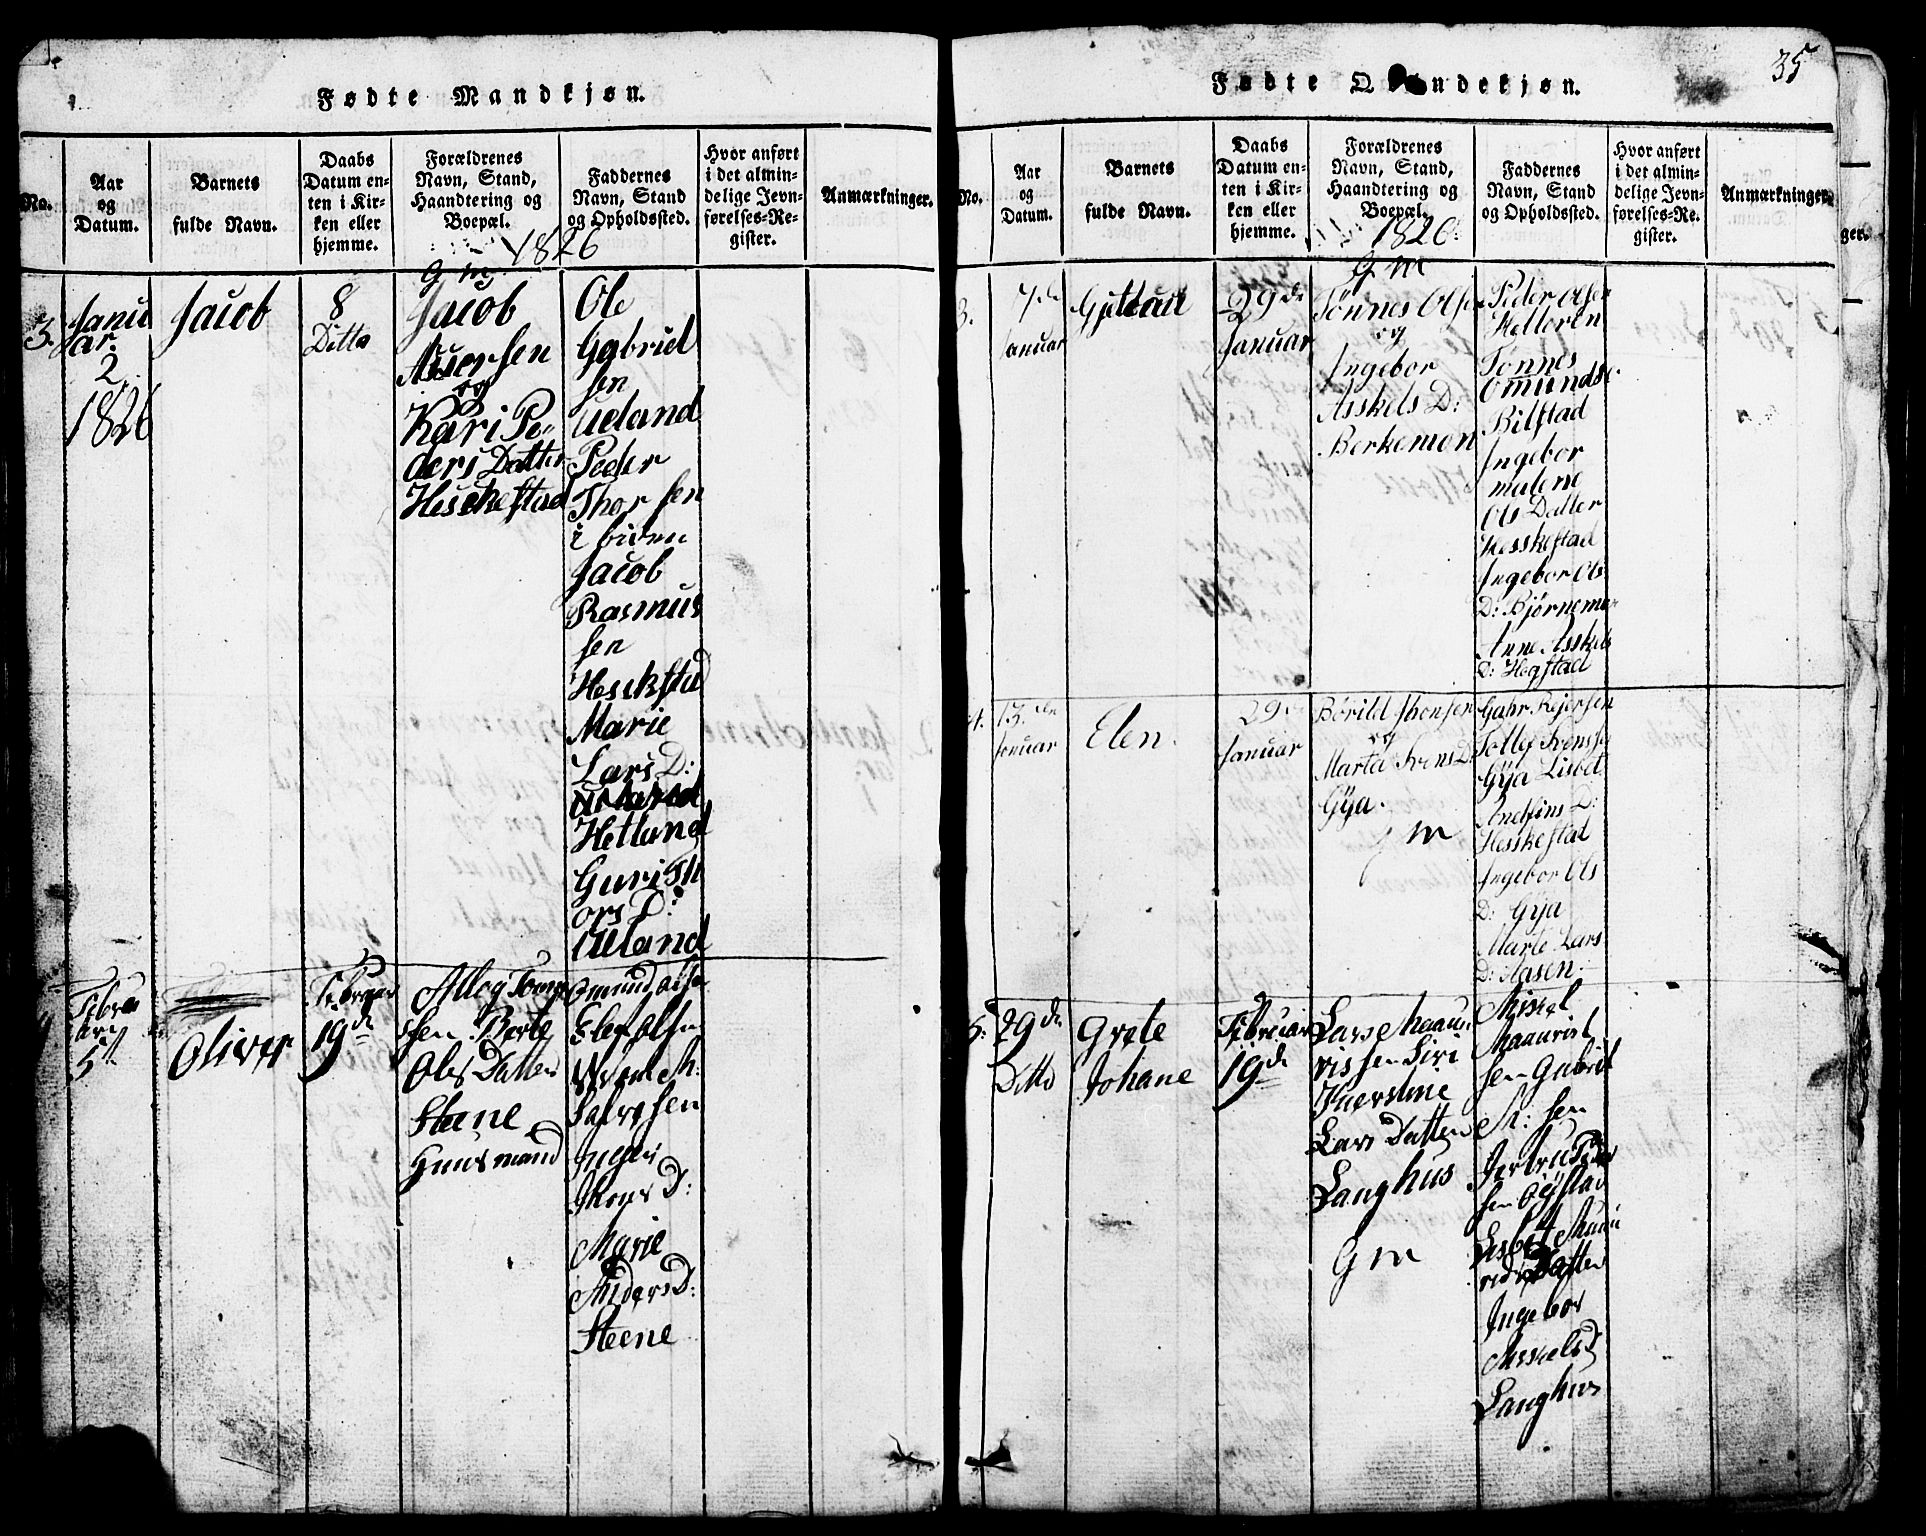 Fødte Mandkjøn.
No.
Aar
og
Datum.
Barnets
fulde Navn.
Daabs
Datum en-
ten i Kir-
ken eller
hjemme.
Forældrenes
Navn, Stand,
Haandtering og
Boepæl.
Faddernes
Navn, Stand
og Opholdssted.
Hvor anført
i det almin-
delige Jevn-
førelses-Re-
gister.
Anmærkninger.
1826
3.
Janu
ar.
2
1826
Jacob
8
Ditto
g m
Jacob
Assersen
og
Kari Pe-
ders Datter
Heskestad
Ole
Gabriel
sen
Ueland
Peder
Thorsen
i
Jacob
Rasmus
sen
Heskestad
Marie
Lars D:
Hetland
Guri Th
ors D:
Ueland
Februa
ari
5te
Oliver
Februar
19de
Berte
Ols Datter
Steene
Huusmand
Omund Olsen
Ole Olsen
Salvesen
Inger
Thors D:
Marie
Anders D:
Steene
35
Fødte Qvindekjøn.
No.
Aar
og
Datum.
Barnets
fulde Navn.
Daabs
Datum en-
ten i Kir-
ken eller
hjemme.
Forældrenes
Navn, Stand,
Haandtering og
Boepæl.
Faddernes
Navn, Stand
og Opholdssted.
Hvor anført
i det almin-
delige Jevn-
førelses-Re-
gister.
Anmærkninger
1826
3.
7de
Januar
29de
Januar
g m
Tønnes Olsen
og
Ingebor
Asskels D:
Berkemoen
Peder Olsen
Kelloren
Tønnes
Omunds.
Bilstad
Ingebor
malene
Ols Datter
Hesskestad
Ingebor Ols
D: Bjørnemo
Anne Asskels
D: Hegstad
4.
13den
Januar
Elen.
29de
Januar
Børild Thorsen
og
Marta Svens D:
Gya.
g m
Gahr Rejersen
Tollef Svenssen
Gya Lisbet
D:
Hesskestad
Ingebor Ols
D: Gya
Marte Lars
D: Aasen.
5.
29de
Ditto
Grete
Johane
Februar
19de
Lars Maau
rissen Siri
Kierstine
Lars Datter
Langhus
G m
Missel
Maaurist
sen Gabriel
M: sen
sen Øystad
Lisbet Maau
rids Datter
Ingebor
Asskels D
Langhus